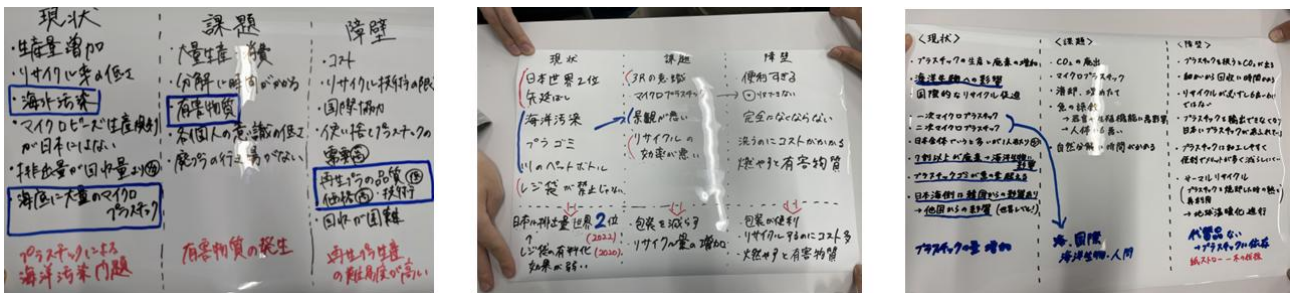 現状
・生産量増加
・リサイクル率の低さ
・海洋汚染
・マイクロビーズ生産規制
が日本にはない
・排出量が回収量より
・海底に大量のマイクロ
プラスチック
プラスチックによる
海洋汚染問題
課題
・大量生産 消費
・分解に時間がかかる
・有害物質
・各個人の意識の低さ
・廃プラの行き場がない
有害物質の発生
障壁
・コスト
・リサイクル技術の
・国際協力
・使い捨てプラスチックの
需要高
・再生プラの品質 低
価格 高
・回収が困難
再生プラ生産
の難易度が高い
現状
日本世界2位
先延ばし
海洋汚染
プラゴミ
川のペットボトル
レジ袋が禁止じゃない
日本の排出量世界2位
(2022)
レジ袋の有料化
(2020)
効果が弱い
課題
3Rの意識
マイクロプラスチック
景観が悪い
リサイクルの
効率が悪い
・包装を減らす
・リサイクル量の増加
障壁
便利すぎる
完全になくならない
洗うのにコストがかかる
燃やすと有害物質
・包装が便利
・リサイクルするのにコスト多
・燃やすと有害物質
〈現状〉
・プラスチックの生産と廃棄の増加
・海洋生物への影響
・国際的なリサイクル促進
一次マイクロプラスチック
二次マイクロプラスチック
・プラスチックゴミが魚の量超える
・日本海側は韓国からの影響あり
→他国からの影響
プラスチックの量 増加
〈課題〉
・CO₂の排出
・マイクロプラスチック
・海部、埋め立て
・魚の誤飲
→人体にも悪い
・自然分解に時間がかかる
海・国際
海洋生物・人間
〈障壁〉
・プラスチックを扱うとCO₂が出る
・細かいから回収に時間かかる
・リサイクルが必ずしも良いわけ
ではない
・プラスチックを輸出できなくなり
日本にプラスチックがあふれた
・プラスチックは加工しやすく
・サーマルリサイクル
→地球温暖化進行
代替品ない
→プラスチックに依存